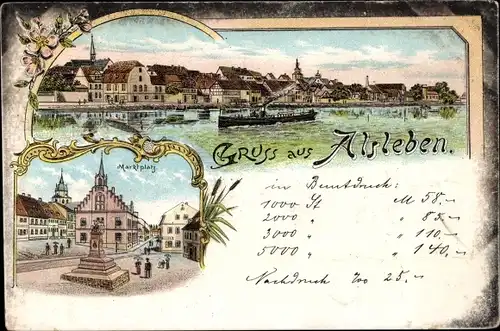 Gruss aus Alsleben.
Marktplatz
in Buntdruck:
1000 St M 58.-
2000 " " 85.-
3000 " " 110.-
5000 " " 140.-
Nachdruck 25.-